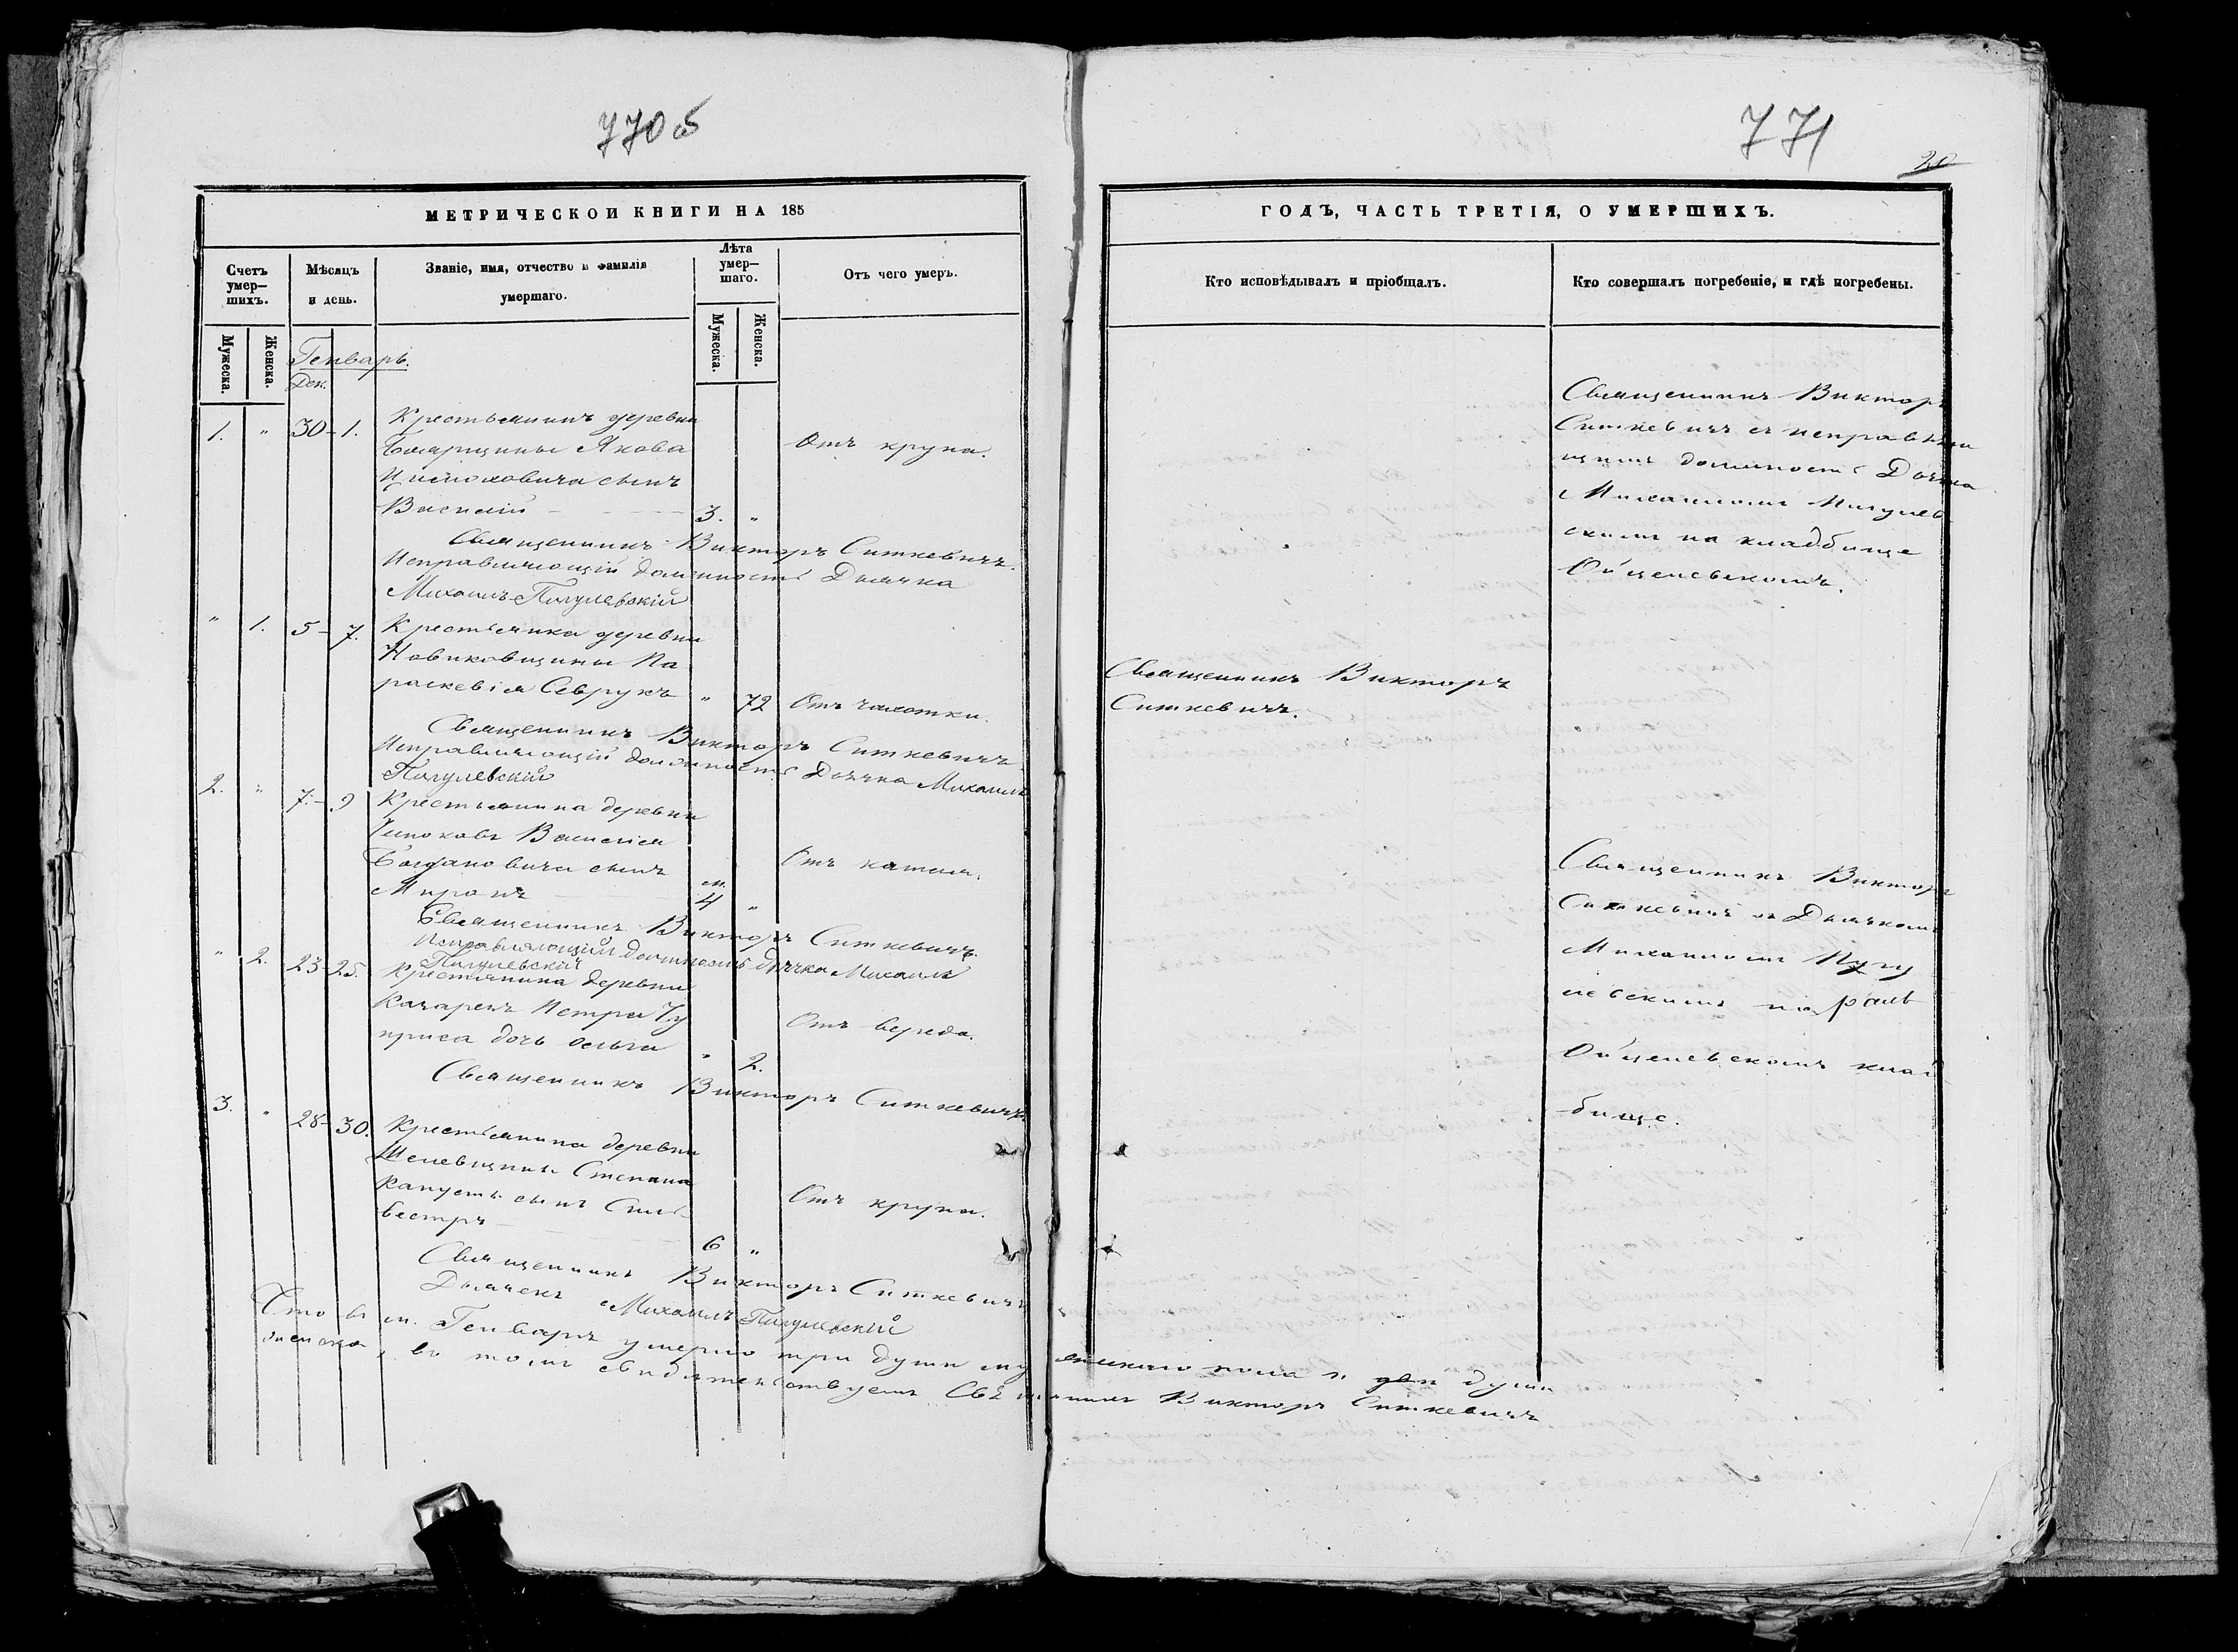 770 б
МЕТРИЧЕСКОЙ КНИГИ НА 185
Счетъ умер-шихъ.
Мѣсяцъ и день.
Званіе, имя, отчество и фамилія умершаго.
Лѣта умер-шаго.
Отъ чего умеръ.
Мужеска. Женска.
Мужеска. Женска.
Генварь.
Дек.
1. " 30-1. Крестьянинъ деревни
Якова
сынъ
Василій 3. "
Отъ крупа.
Священникъ Викторъ Ситкевичъ.
Исправляющій должность Дьячка
Михаилъ Пигулевскій
" 1. 5-7. Крестьянка деревни
Новиковщины Па
раскевія Севрукъ " 72 Отъ чахотки.
Священникъ Викторъ Ситкевичъ
Исправляющій должность Дьячка Михаилъ
Пигулевскій
2. " 7-9 Крестьянина деревни
Василія
Богдановича сынъ
Миронъ м. 4 "
Отъ кашля.
Священникъ Викторъ Ситкевичъ.
Исправляющій должность дьячка Михаилъ
Пигулевскій
" 2. 23-25. Крестьянина деревни
Петра Чу
приса дочь " 2.
Отъ вереда.
Священникъ Викторъ Ситкевичъ.
3. " 28-30. Крестьянина деревни
Степана
Капусты сынъ Силь-
вестръ 6 "
Отъ крупа.
Священникъ Викторъ Ситкевичъ
Дьячекъ Михаилъ Пигулевскій
Что въ м. Генварѣ умерло три души мужескаго пола и две души
женска, въ томъ свидѣтельствуемъ Священникъ Викторъ Ситкевичъ
771
20
ГОДЪ, ЧАСТЬ ТРЕТІЯ, О УМЕРШИХЪ.
Кто исповѣдывалъ и пріобщалъ.
Кто совершалъ погребеніе, и гдѣ погребены.
Священникъ Викторъ
Ситкевичъ.
Священникъ Викторъ
Ситкевичъ съ исправляю
щимъ должность Дьячка
Михаиломъ Пигулев
скимъ на кладбище
Священникъ Викторъ
Ситкевичъ съ Дьячкомъ
Михаиломъ Пигу
левскимъ на
клад
бище.